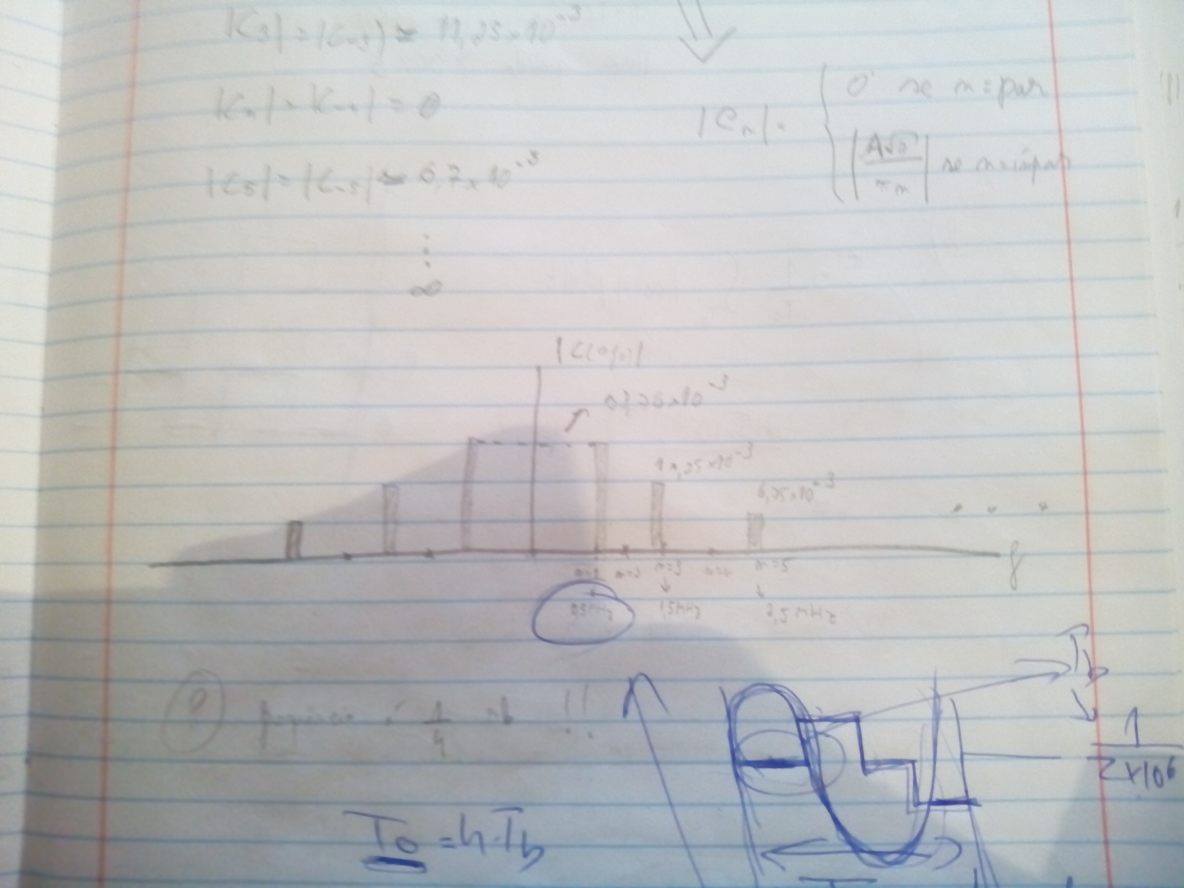 |C3| = |C-3| ≃ 11,25 x 10^-3
= 0
|C5| = |C-5| ≃ 6,7 x 10^-3
⋮
∞
|Cn| =
0 se n = par
|A√5 / πn| se n = ímpar
x10^-3
11,25 x 10^-3
6,75 x 10^-3
...
f
n=1 n=2 n=3 n=4 n=5
0,5MHz 1,5MHz 2,5MHz
? é 1/4 !!
Tb
1 / 2x10^6
To = 4.Tb